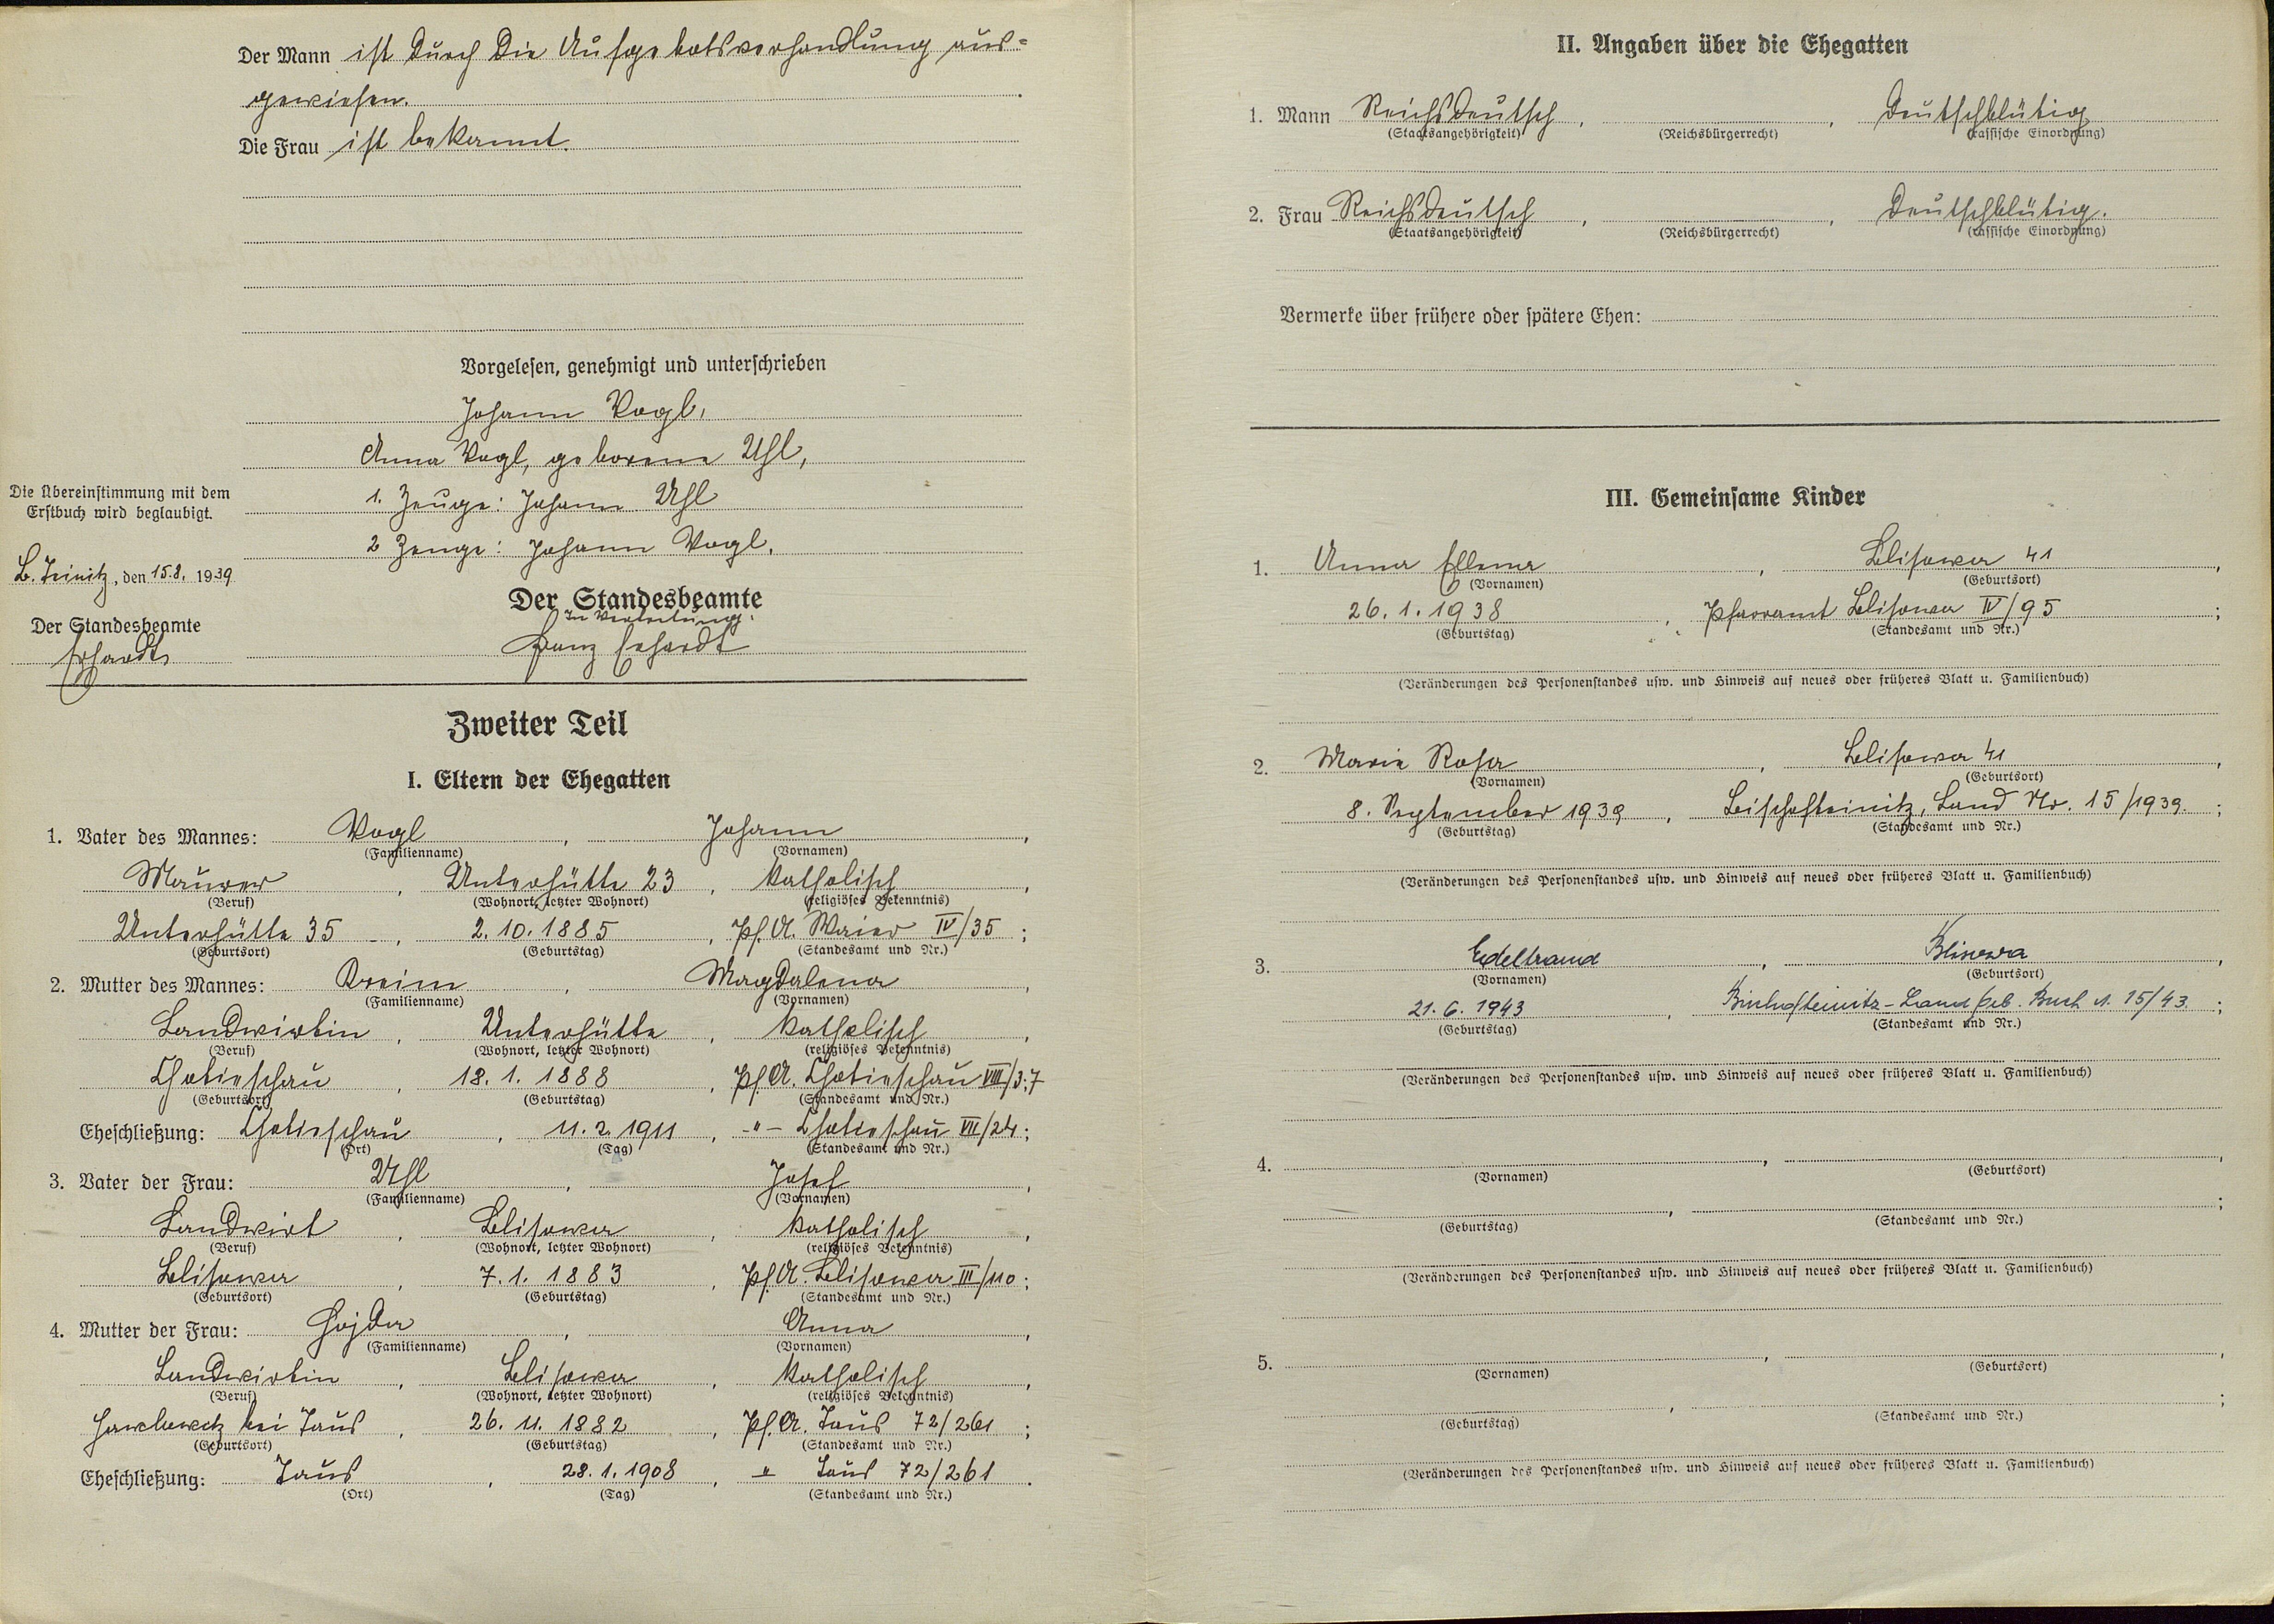 Der Mann ist durch die Aufgebotsverhandlung aus=
gewiesen.
Die Frau ist bekannt.
Vorgelesen, genehmigt und unterschrieben
Johann Vogl,
Anna Vogl, geborene Uhl,
1. Zeuge: Johann Uhl
2 Zeuge: Johann Vogl.
Die Übereinstimmung mit dem
Erstbuch wird beglaubigt.
B. Teinitz, den 15.8. 1939
Der Standesbeamte
Erhardt
Der Standesbeamte
In Vertretung:
Franz Erhardt
Zweiter Teil
I. Eltern der Ehegatten
1. Vater des Mannes: Vogl, Johann,
(Familienname) (Vornamen)
Maurer, Unterhütte 23, katholisch,
(Beruf) (Wohnort, letzter Wohnort) (religiöses Bekenntnis)
Unterhütte 35, 2.10.1885, Pf.A. Maier IV/35;
(Geburtsort) (Geburtstag) (Standesamt und Nr.)
2. Mutter des Mannes: Preim, Magdalena,
(Familienname) (Vornamen)
Landwirtin, Unterhütte, katholisch,
(Beruf) (Wohnort, letzter Wohnort) (religiöses Bekenntnis)
Chotieschau, 18.1.1888, Pf.A. Chotieschau VIII/3;7
(Geburtsort) (Geburtstag) (Standesamt und Nr.)
Eheschließung: Chotieschau, 11.2.1911, -"- Chotieschau VII/24;
(Ort) (Tag) (Standesamt und Nr.)
3. Vater der Frau: Uhl, Josef,
(Familienname) (Vornamen)
Landwirt, Blisowa, katholisch,
(Beruf) (Wohnort, letzter Wohnort) (religiöses Bekenntnis)
Blisowa, 7.1.1883, Pf.A. Blisowa III/110;
(Geburtsort) (Geburtstag) (Standesamt und Nr.)
4. Mutter der Frau: Hojda, Anna,
(Familienname) (Vornamen)
Landwirtin, Blisowa, katholisch,
(Beruf) (Wohnort, letzter Wohnort) (religiöses Bekenntnis)
bei Taus, 26.11.1882, Pf.A. Taus 72/261;
(Geburtsort) (Geburtstag) (Standesamt und Nr.)
Eheschließung: Taus, 28.1.1908, " Taus 72/261.
(Ort) (Tag) (Standesamt und Nr.)
II. Angaben über die Ehegatten
1. Mann Reichsdeutsch, , Deutschblütig
(Staatsangehörigkeit) (Reichsbürgerrecht) (rassische Einordnung)
2. Frau Reichsdeutsch, , Deutschblütig.
(Staatsangehörigkeit) (Reichsbürgerrecht) (rassische Einordnung)
Vermerke über frühere oder spätere Ehen:
III. Gemeinsame Kinder
1. Anna Ellena, Blisowa 41,
(Vornamen) (Geburtsort)
26.1.1938, Pfarramt Blisowa IV/95;
(Geburtstag) (Standesamt und Nr.)
(Veränderungen des Personenstandes usw. und Hinweis auf neues oder früheres Blatt u. Familienbuch)
2. Marie Rosa, Blisowa 41,
(Vornamen) (Geburtsort)
8. September 1939, Bischofteinitz, Land Nr. 15/1939.;
(Geburtstag) (Standesamt und Nr.)
(Veränderungen des Personenstandes usw. und Hinweis auf neues oder früheres Blatt u. Familienbuch)
3. Edeltraud, Blisowa,
(Vornamen) (Geburtsort)
21.6.1943, Bischofteinitz-Land Geb. Buch N. 15/43;
(Geburtstag) (Standesamt und Nr.)
(Veränderungen des Personenstandes usw. und Hinweis auf neues oder früheres Blatt u. Familienbuch)
4. , ,
(Vornamen) (Geburtsort)
, ;
(Geburtstag) (Standesamt und Nr.)
(Veränderungen des Personenstandes usw. und Hinweis auf neues oder früheres Blatt u. Familienbuch)
5. , ,
(Vornamen) (Geburtsort)
, ;
(Geburtstag) (Standesamt und Nr.)
(Veränderungen des Personenstandes usw. und Hinweis auf neues oder früheres Blatt u. Familienbuch)